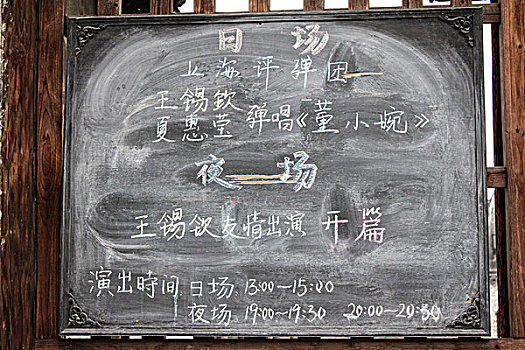 日 场
上海评弹团
王锡钦
夏惠莹 弹唱《董小婉》
夜 场
王锡钦友情出演 开篇
演出時间:日场:13:00～15:00
夜场:19:00～19:30 20:00～20:30